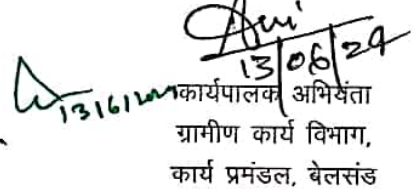 13/06/24
13/6/2024
कार्यपालक अभियंता
ग्रामीण कार्य विभाग,
कार्य प्रमंडल, बेलसंड